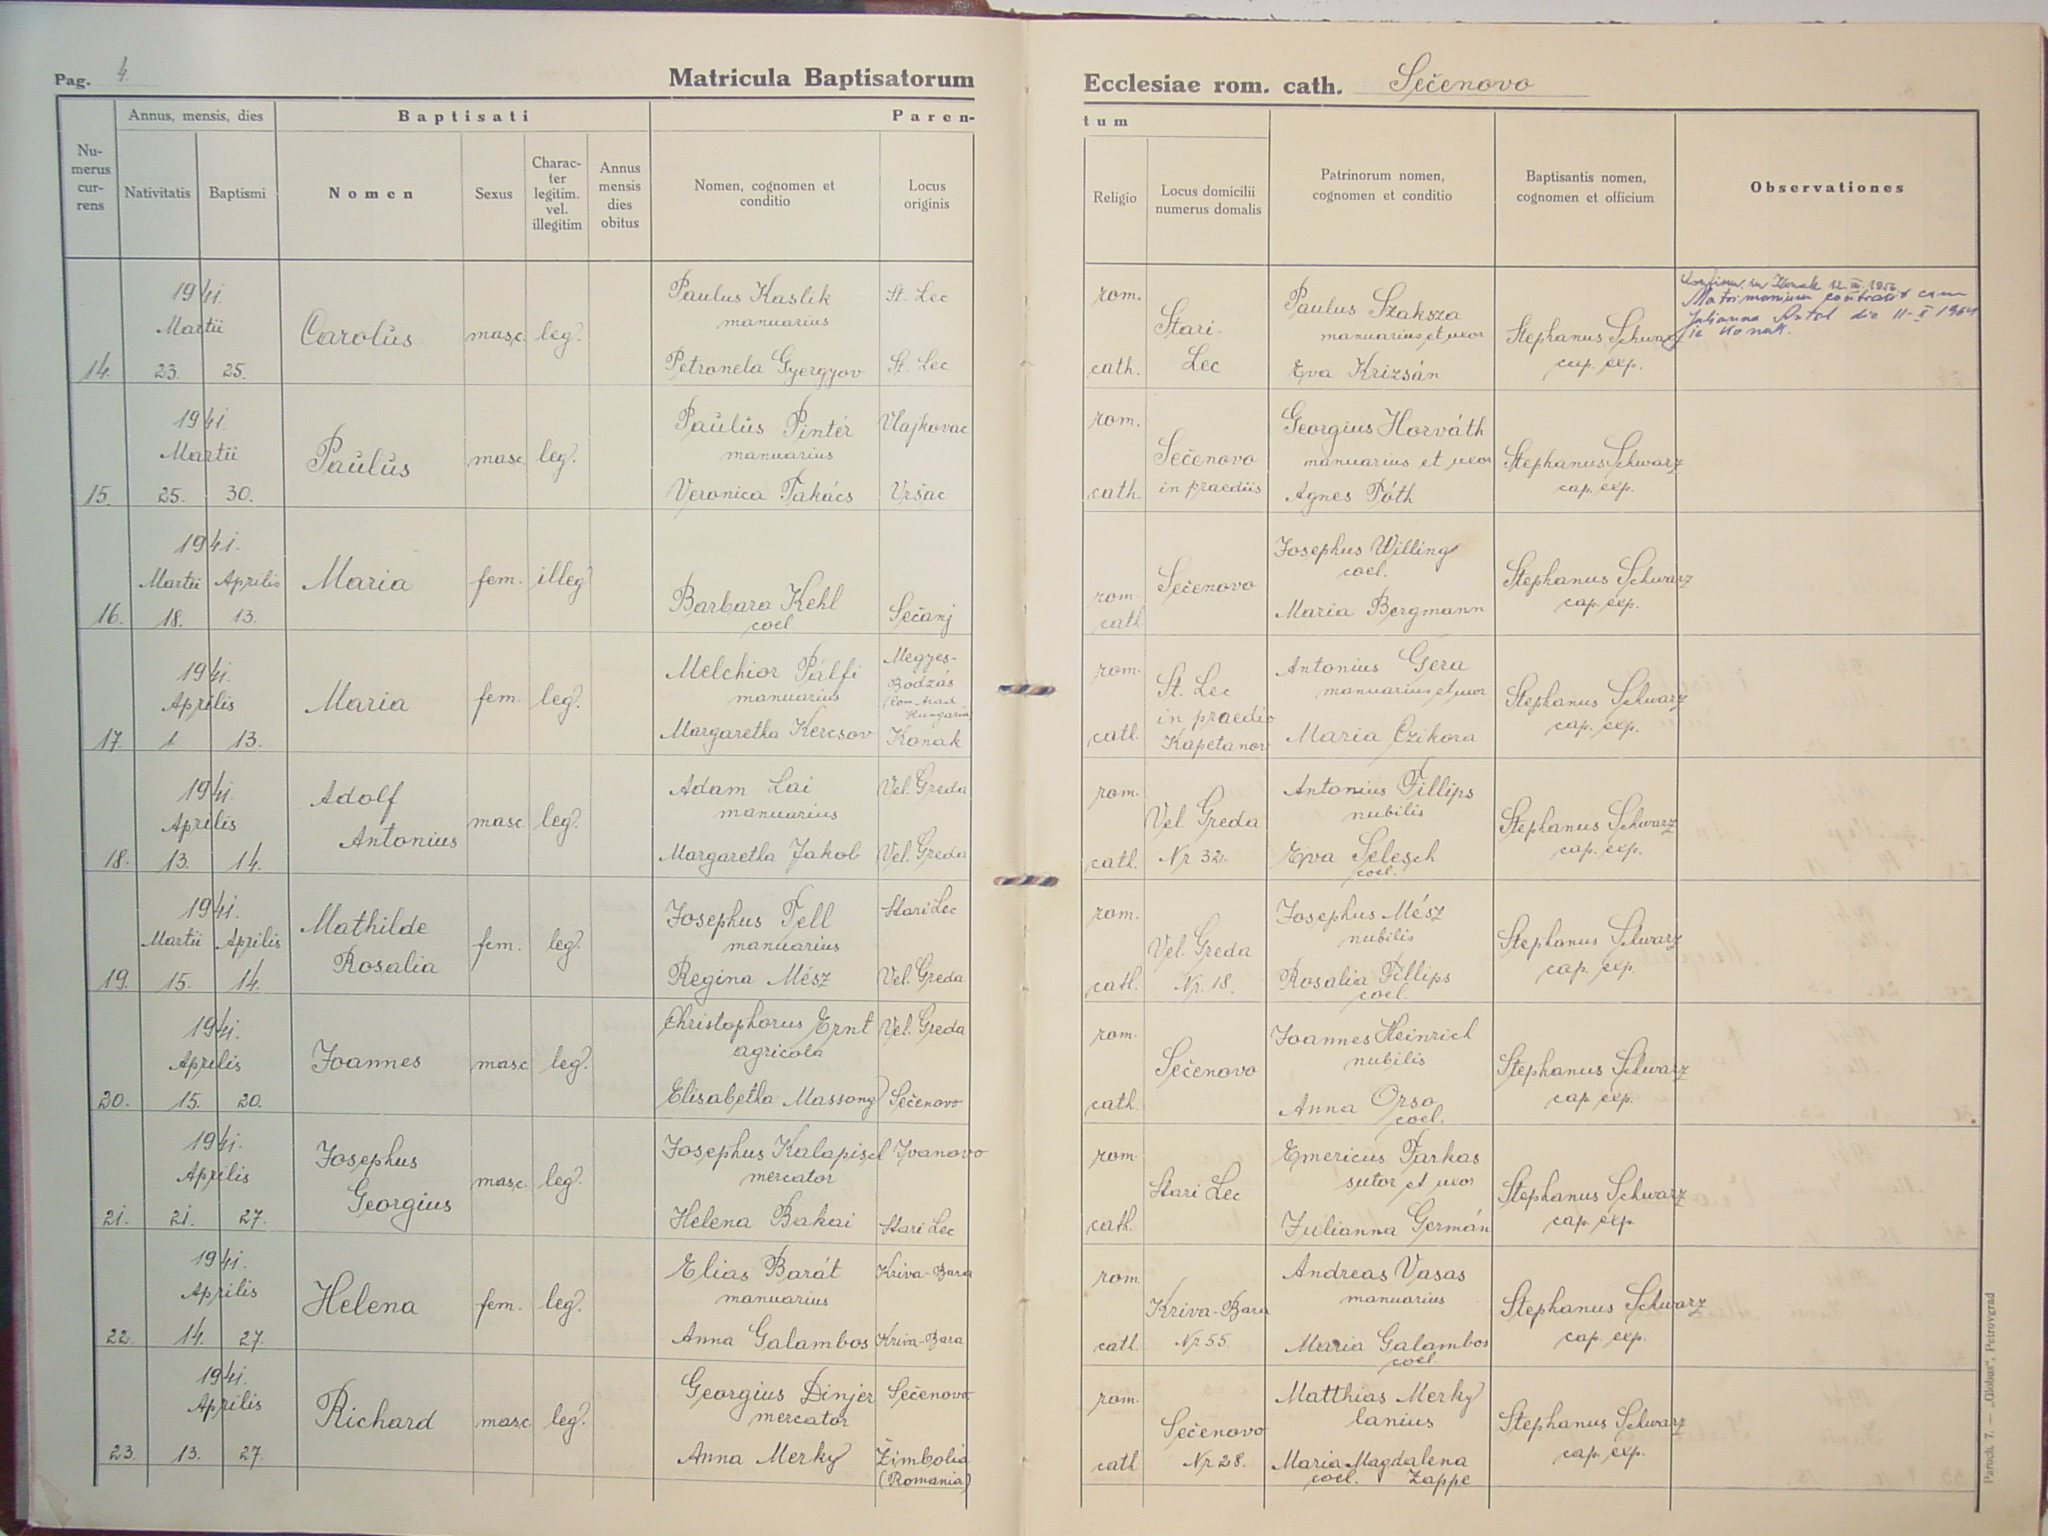 Pag. 4
Matricula Baptisatorum
Ecclesiae rom. cath. Sečenovo
Numerus currens
Annus, mensis, dies
Nativitatis Baptismi
Baptisati
Nomen
Sexus
Charac-
ter
legitim.
vel.
illegitim
Annus
mensis
dies
obitus
Paren-
tum
Nomen, cognomen et
conditio
Locus
originis
Religio
Locus domicilii
numerus domalis
Patrinorum nomen,
cognomen et conditio
Baptisantis nomen,
cognomen et officium
Observationes
14. 1941. Martii 23. 25.
Carolus masc. leg.
Paulus Kaslik St. Lec
manuarius
Petronela Gyergyov St. Lec
rom. cath.
Stari-
Lec
Paulus Szaksza
manuarius et uxor
Eva Krizsán
Stephanus Schwarz
cap. exp.
Matrimonium contraxit cum
Julianna Antal die 11-I 1964
Konak.
15. 1941. Martii 25. 30.
Paulus masc. leg.
Paulus Pintér Vlajkovac
manuarius
Veronica Takács Vršac
rom. cath.
Sečenovo
in praediis
Georgius Horváth
manuarius et uxor
Agnes Tóth
Stephanus Schwarz
cap. exp.
16. 1941. Martii 18. Aprilis 13.
Maria fem. illeg.
Barbara Kehl Sečanj
coel
rom. cath
Sečenovo
Josephus Willing
coel.
Maria Bergmann
Stephanus Schwarz
cap. exp.
17. 1941. Aprilis 1 13.
Maria fem. leg.
Melchior Pálfi
manuarius
Megyes-
Bodzás
Hungaria
Margaretha Kercsov Konak
rom. cath.
St. Lec
in praedio
Kapetanov
Antonius Gera
manuarius et uxor
Maria Czikora
Stephanus Schwarz
cap. exp.
18. 1941. Aprilis 13. 14.
Adolf
Antonius masc leg.
Adam Lai Vel. Greda
manuarius
Margaretha Jakob Vel. Greda
rom. cath.
Vel. Greda
Nr 32.
Antonius Fillips
nubilis
Eva Selesch
coel.
Stephanus Schwarz
cap. exp.
19. 1941. Martii 15. Aprilis 14.
Mathilde
Rosalia fem. leg.
Josephus Tell Stari Lec
manuarius
Regina Mész Vel. Greda
rom. cath.
Vel. Greda
Nr. 18.
Josephus Mész
nubilis
Rosalia Fillips
coel.
Stephanus Schwarz
cap. exp.
20. 1941. Aprilis 15. 20.
Joannes masc leg.
Christophorus Ernt Vel. Greda
agricola
Elisabetha Massong Sečenovo
rom. cath.
Sečenovo
Joannes Heinrich
nubilis
Anna Orso
coel.
Stephanus Schwarz
cap. exp.
21. 1941. Aprilis 21. 27.
Josephus
Georgius masc. leg.
Josephus Kalapisch Ivanovo
mercator
Helena Bakai Stari Lec
rom. cath.
Stari Lec
Emericus Farkas
sutor et uxor
Julianna Germán
Stephanus Schwarz
cap. exp.
22. 1941. Aprilis 14. 27.
Helena fem. leg.
Elias Barát Kriva-Bara
manuarius
Anna Galambos Kriva-Bara
rom cath.
Kriva-Bara
Nr 55.
Andreas Vasas
manuarius
Maria Galambos
coel
Stephanus Schwarz
cap. exp.
23. 1941. Aprilis 13. 27.
Richard masc. leg.
Georgius Dinjer Sečenovo
mercator
Anna Merky Žimbolia
(Romania)
rom. cath
Sečenovo
Nr 28.
Matthias Merky
lanius
Maria Magdalena
coel. Zappe
Stephanus Schwarz
cap. exp.
Paroch. 7. — „Globus", Petrovgrad